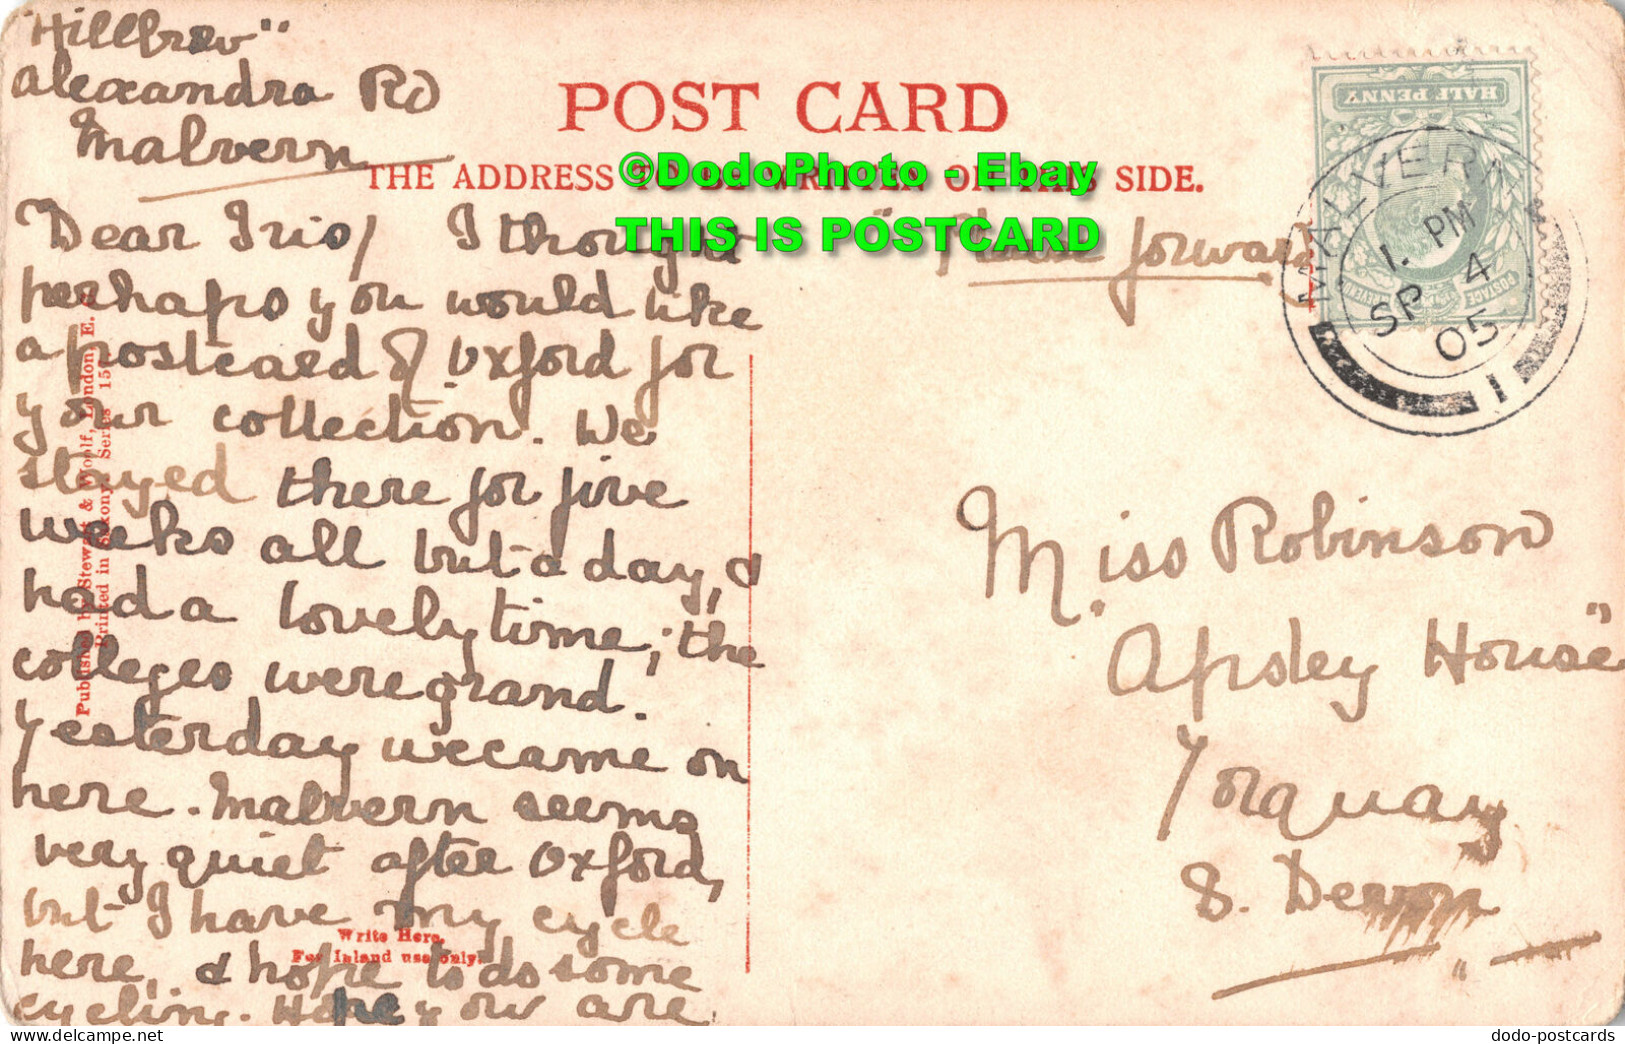 "Hillbrow"
Alexandra Rd
Malvern
POST CARD
THE ADDRESS TO BE WRITTEN ON THIS SIDE.
©DodoPhoto - Ebay
THIS IS POSTCARD
HALF PENNY
POSTAGE
MALVERN
1. PM
SP 4
05
1
"Please forward
Dear Iris/ I thought
perhaps you would like
a postcard of Oxford for
your collection. We
stayed there for five
weeks all but a day, &
had a lovely time; the
colleges were grand.
Yesterday we came on
here. Malvern seems
very quiet after Oxford,
but I have my cycle
here, & hope to do some
cycling. Hope you are
Miss Robinson
"Apsley House"
Torquay
S. Devon
"
Published by Stewart & Woolf, London, E.C.
Printed in Saxony. Series 15
Write Here.
For Inland use only.
dodo-postcards